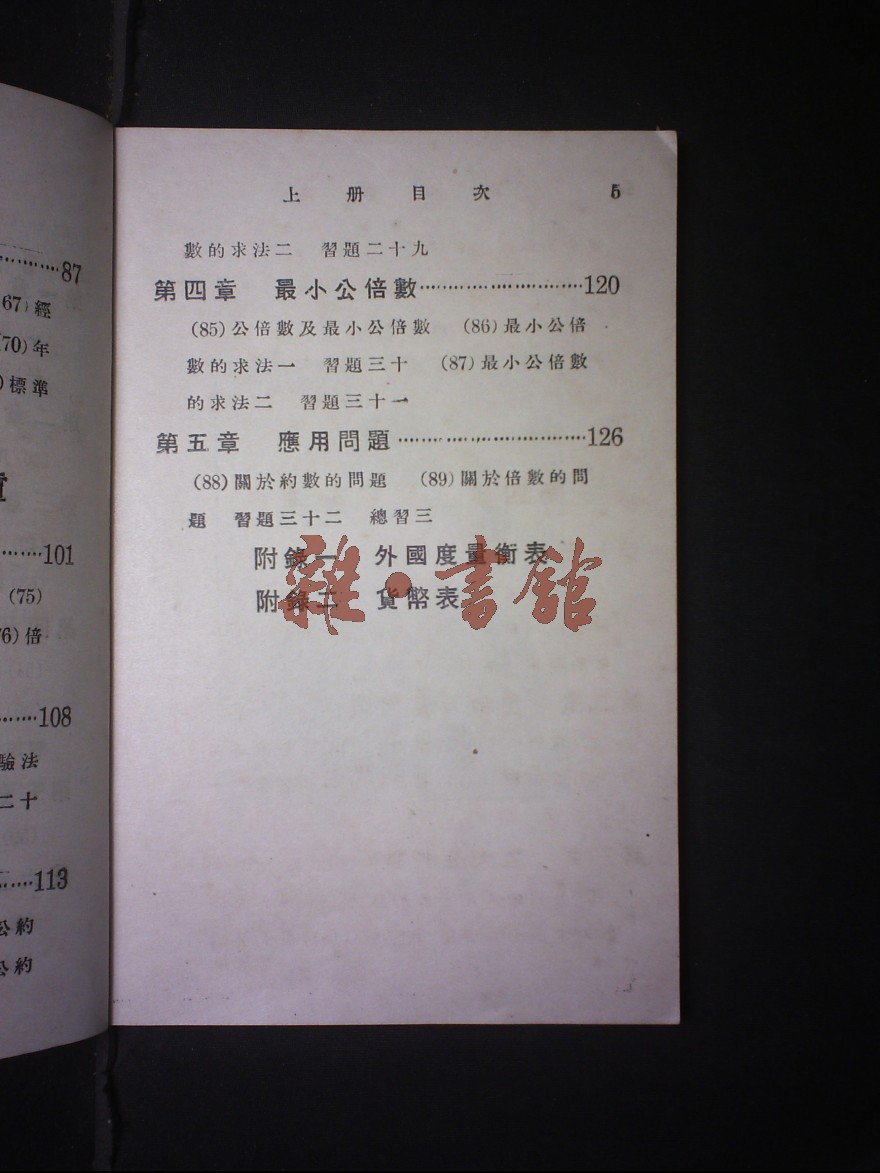 87
67) 經
70) 年
) 標準
101
(75)
76) 倍
108
驗法
二十
113
公約
公約
上冊目次 5
數的求法二 習題二十九
第四章 最小公倍數………………………120
(85) 公倍數及最小公倍數 (86) 最小公倍
數的求法一 習題三十 (87) 最小公倍數
的求法二 習題三十一
第五章 應用問題………………………126
(88) 關於約數的問題 (89) 關於倍數的問
題 習題三十二 總習三
附錄一 外國度量衡表
附錄二 貨幣表
雜·書館